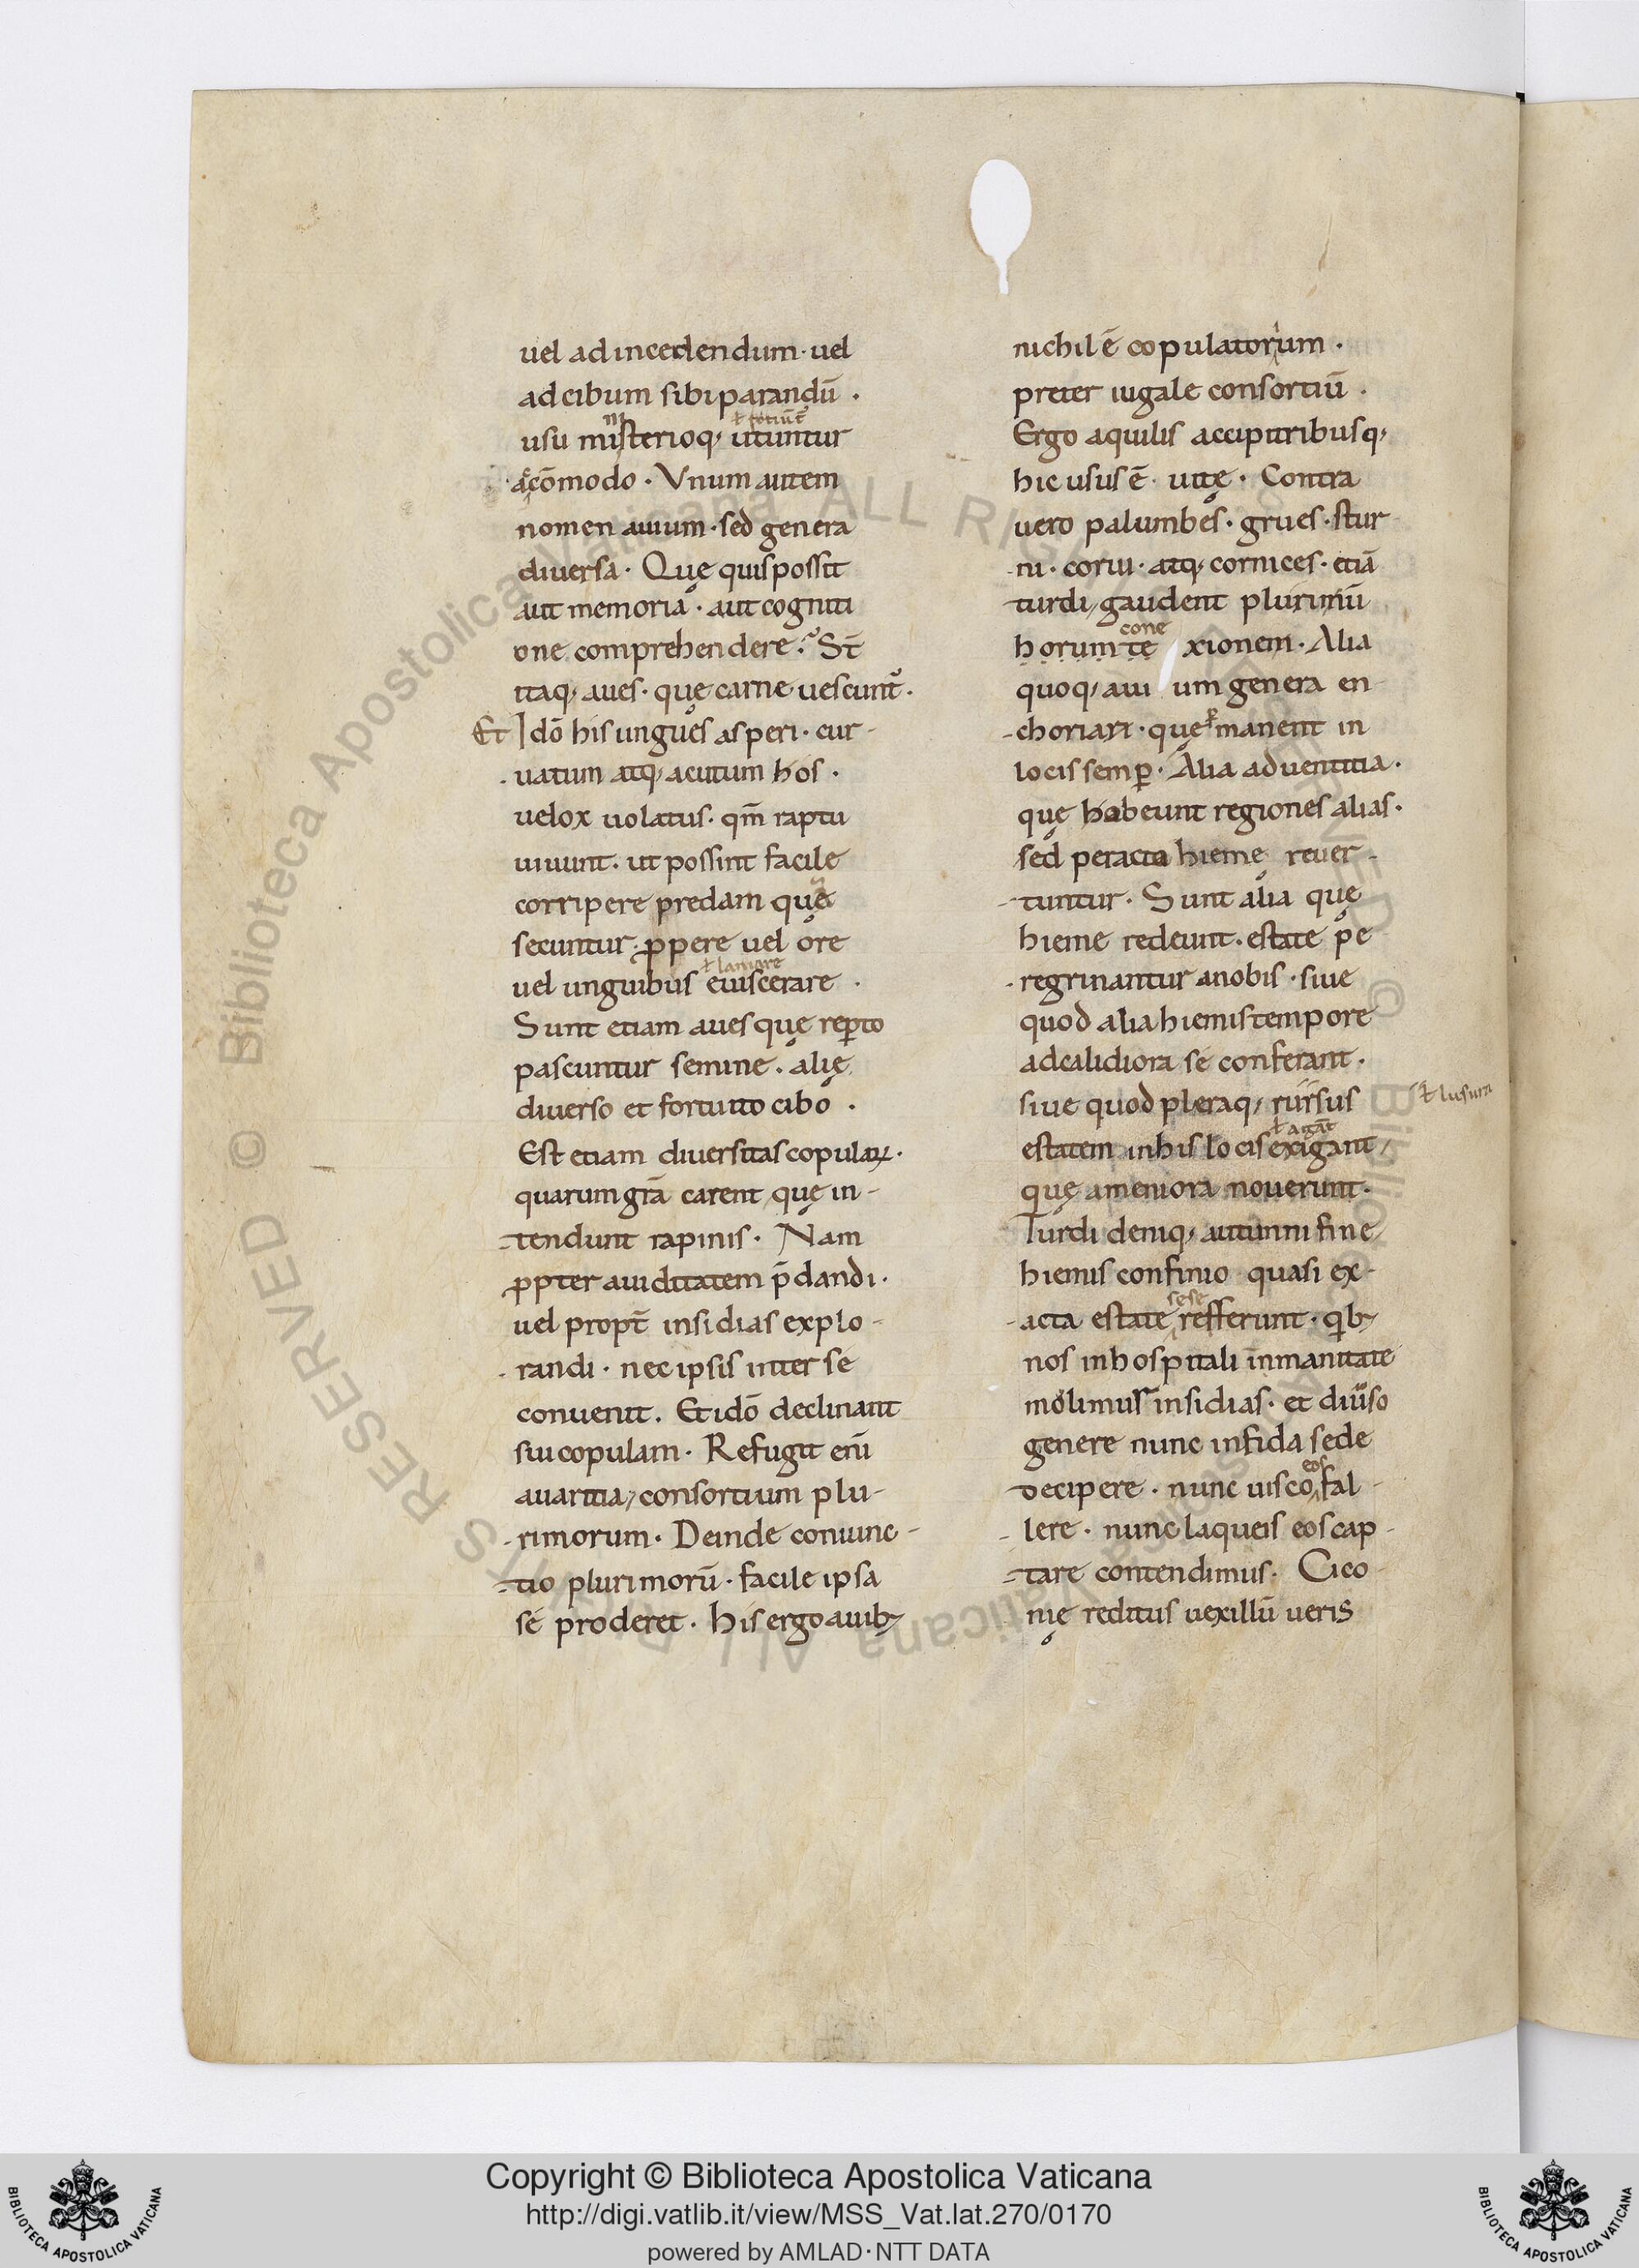 uel ad incedendum · uel
ad cibum sibi parandū .
usu misterioq; utuntur
acōmodo . Vnum autem
nomen auium · sed genera
diuersa · Quę quis possit
aut memoria · aut cogniti
one comprehendere . St̄
itaq; aues · quę carne uescunt̄ .
Et Idō his ungues asperi · cur-
uatum atq; acutum hos .
uelox uolatus · qm̄ raptu
uiuunt . ut possint facile
corripere predam quę
secuntur . ꝓpere uel ore
ł laniare
uel unguibus euiscerare .
Sunt etiam aues quę reꝑto
pascuntur semine . alię
diuerso et fortuito cibo .
Est etiam diuersitas copulaꝝ .
quarum grā carent quę in-
tendunt rapinis . Nam
ꝓpter auiditatem p̄dandi .
uel propt̄ insidias explo-
randi . nec ipsis inter se
conuenit . Et idō declinant
sui copulam . Refugit enī
auaritia, consortium plu-
rimorum . Deinde coniunc-
tio plurimorū . facile ipsa
se proderet . his ergo auib;
nichil ē copulatorium .
preter iugale consortiū .
Ergo aquilis accipitribusq;
hic usus ē uitę . Contra
uero palumbes . grues . stur
ni . corui . atq; cornices . etiā
turdi, gaudent plurimū
cone
horum te xionem . Alia
quoq; aui um genera en
choriari . quę manent in
locis semꝑ . Alia aduentitia .
quę habeunt regiones alias .
sed peracta hieme reuer-
tuntur . Sunt alia quę
hieme redeunt . estate pe
regrinantur a nobis . siue
quod alia hiemis tempore
ad calidiora se conferant .
siue quod pleraq; rursus
ł lusura
ł agāt
estatem in his locis exigant,
quę ameniora nouerunt .
Turdi deniq; autumni fine
hiemis confinio quasi ex-
sese
acta estate refferunt . qib;
nos inhospitali inmanitate
molimus insidias . et diuso
genere nunc infida sede
eos
decipere . nunc uisco fal-
lere . nunc laqueis eos cap-
tare contendimus . Cico
nię reditus uexillū ueris
Copyright © Biblioteca Apostolica Vaticana
http://digi.vatlib.it/view/MSS_Vat.lat.270/0170
powered by AMLAD·NTT DATA
BIBLIOTECA APOSTOLICA VATICANA
BIBLIOTECA APOSTOLICA VATICANA